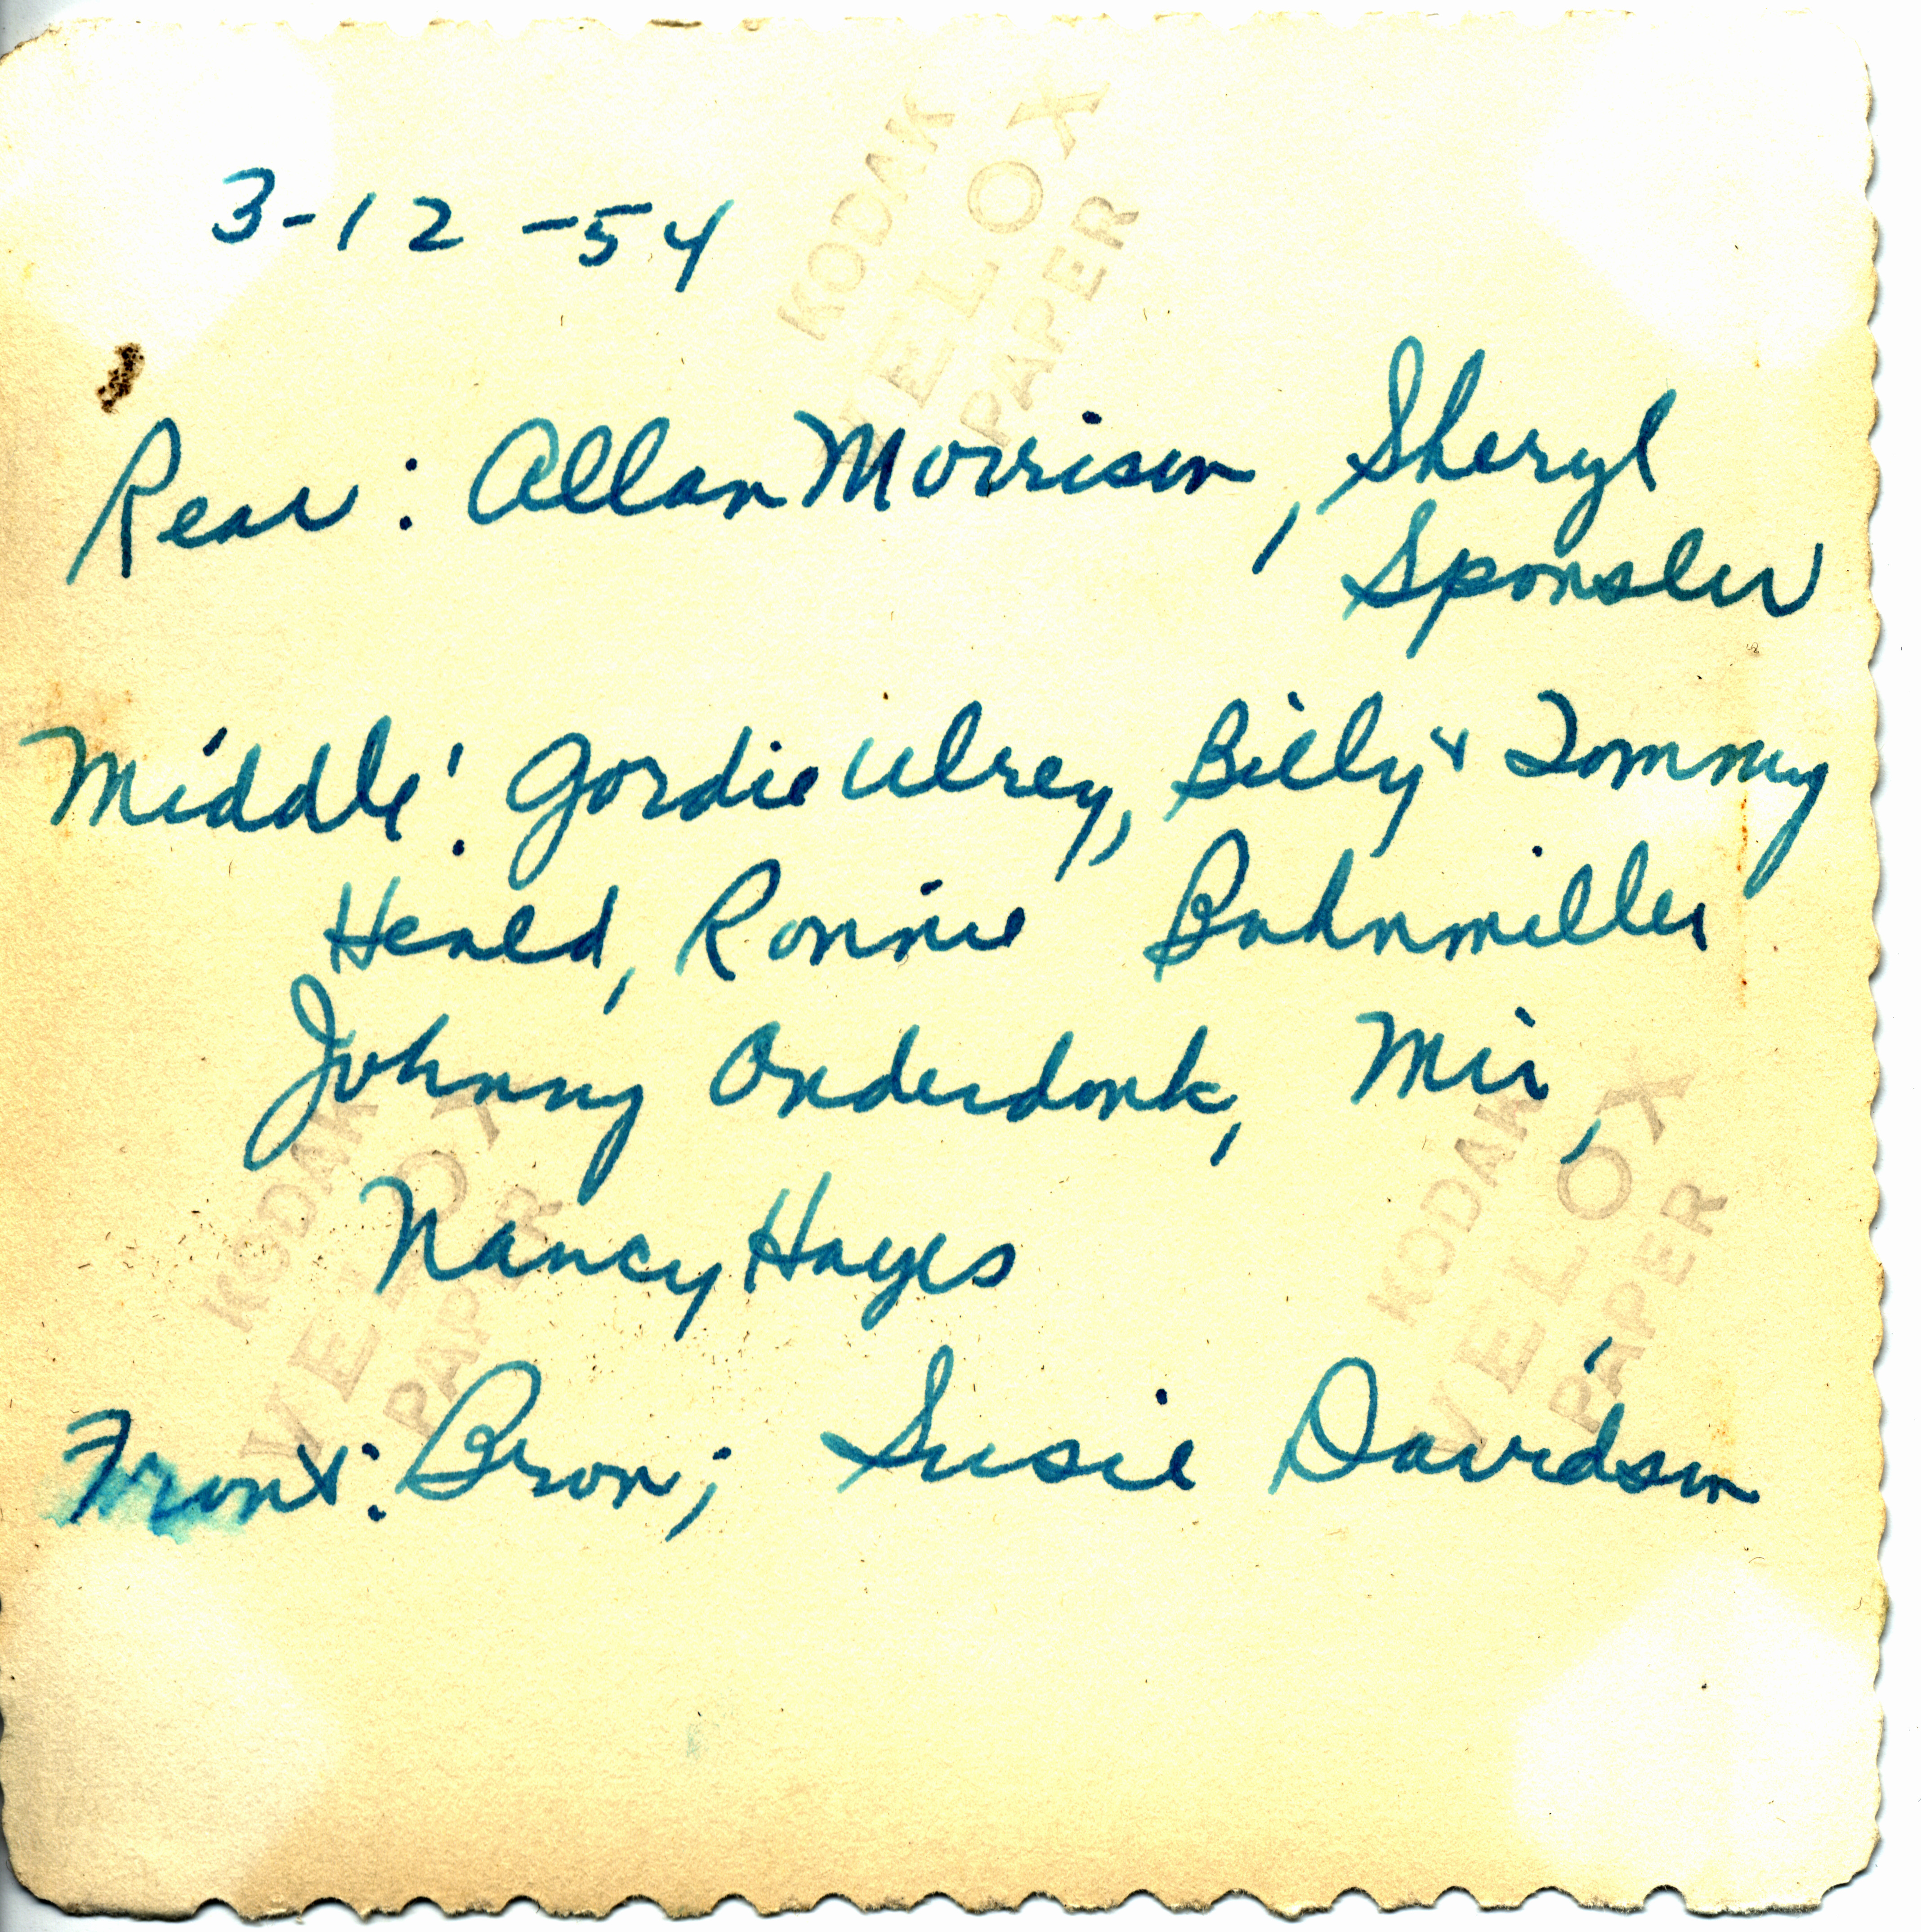 3-12-54
KODAK
VELOX
PAPER
Rear: Allan Morrison, Sheryl
Sponsler
Middle: Gordie Ulrey, Billy & Tommy
Heald, Ronnie Buhnmiller
Johnny Onderdonk, Mir,
Nancy Hayes
KODAK
VELOX
PAPER
KODAK
VELOX
PAPER
Front: Bron; Susie Davidson